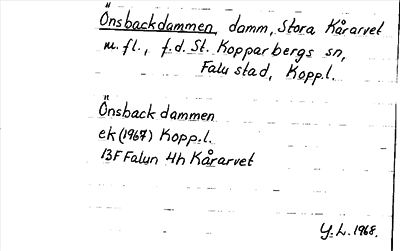 Önsbackdammen, damm, Stora Kårarvet
m.fl., f.d. St. Kopparbergs sn,
Falu stad, Kopp.l.
Önsbackdammen
ek (1967) Kopp.l.
13F Falun 4h Kårarvet
Y.L. 1968.